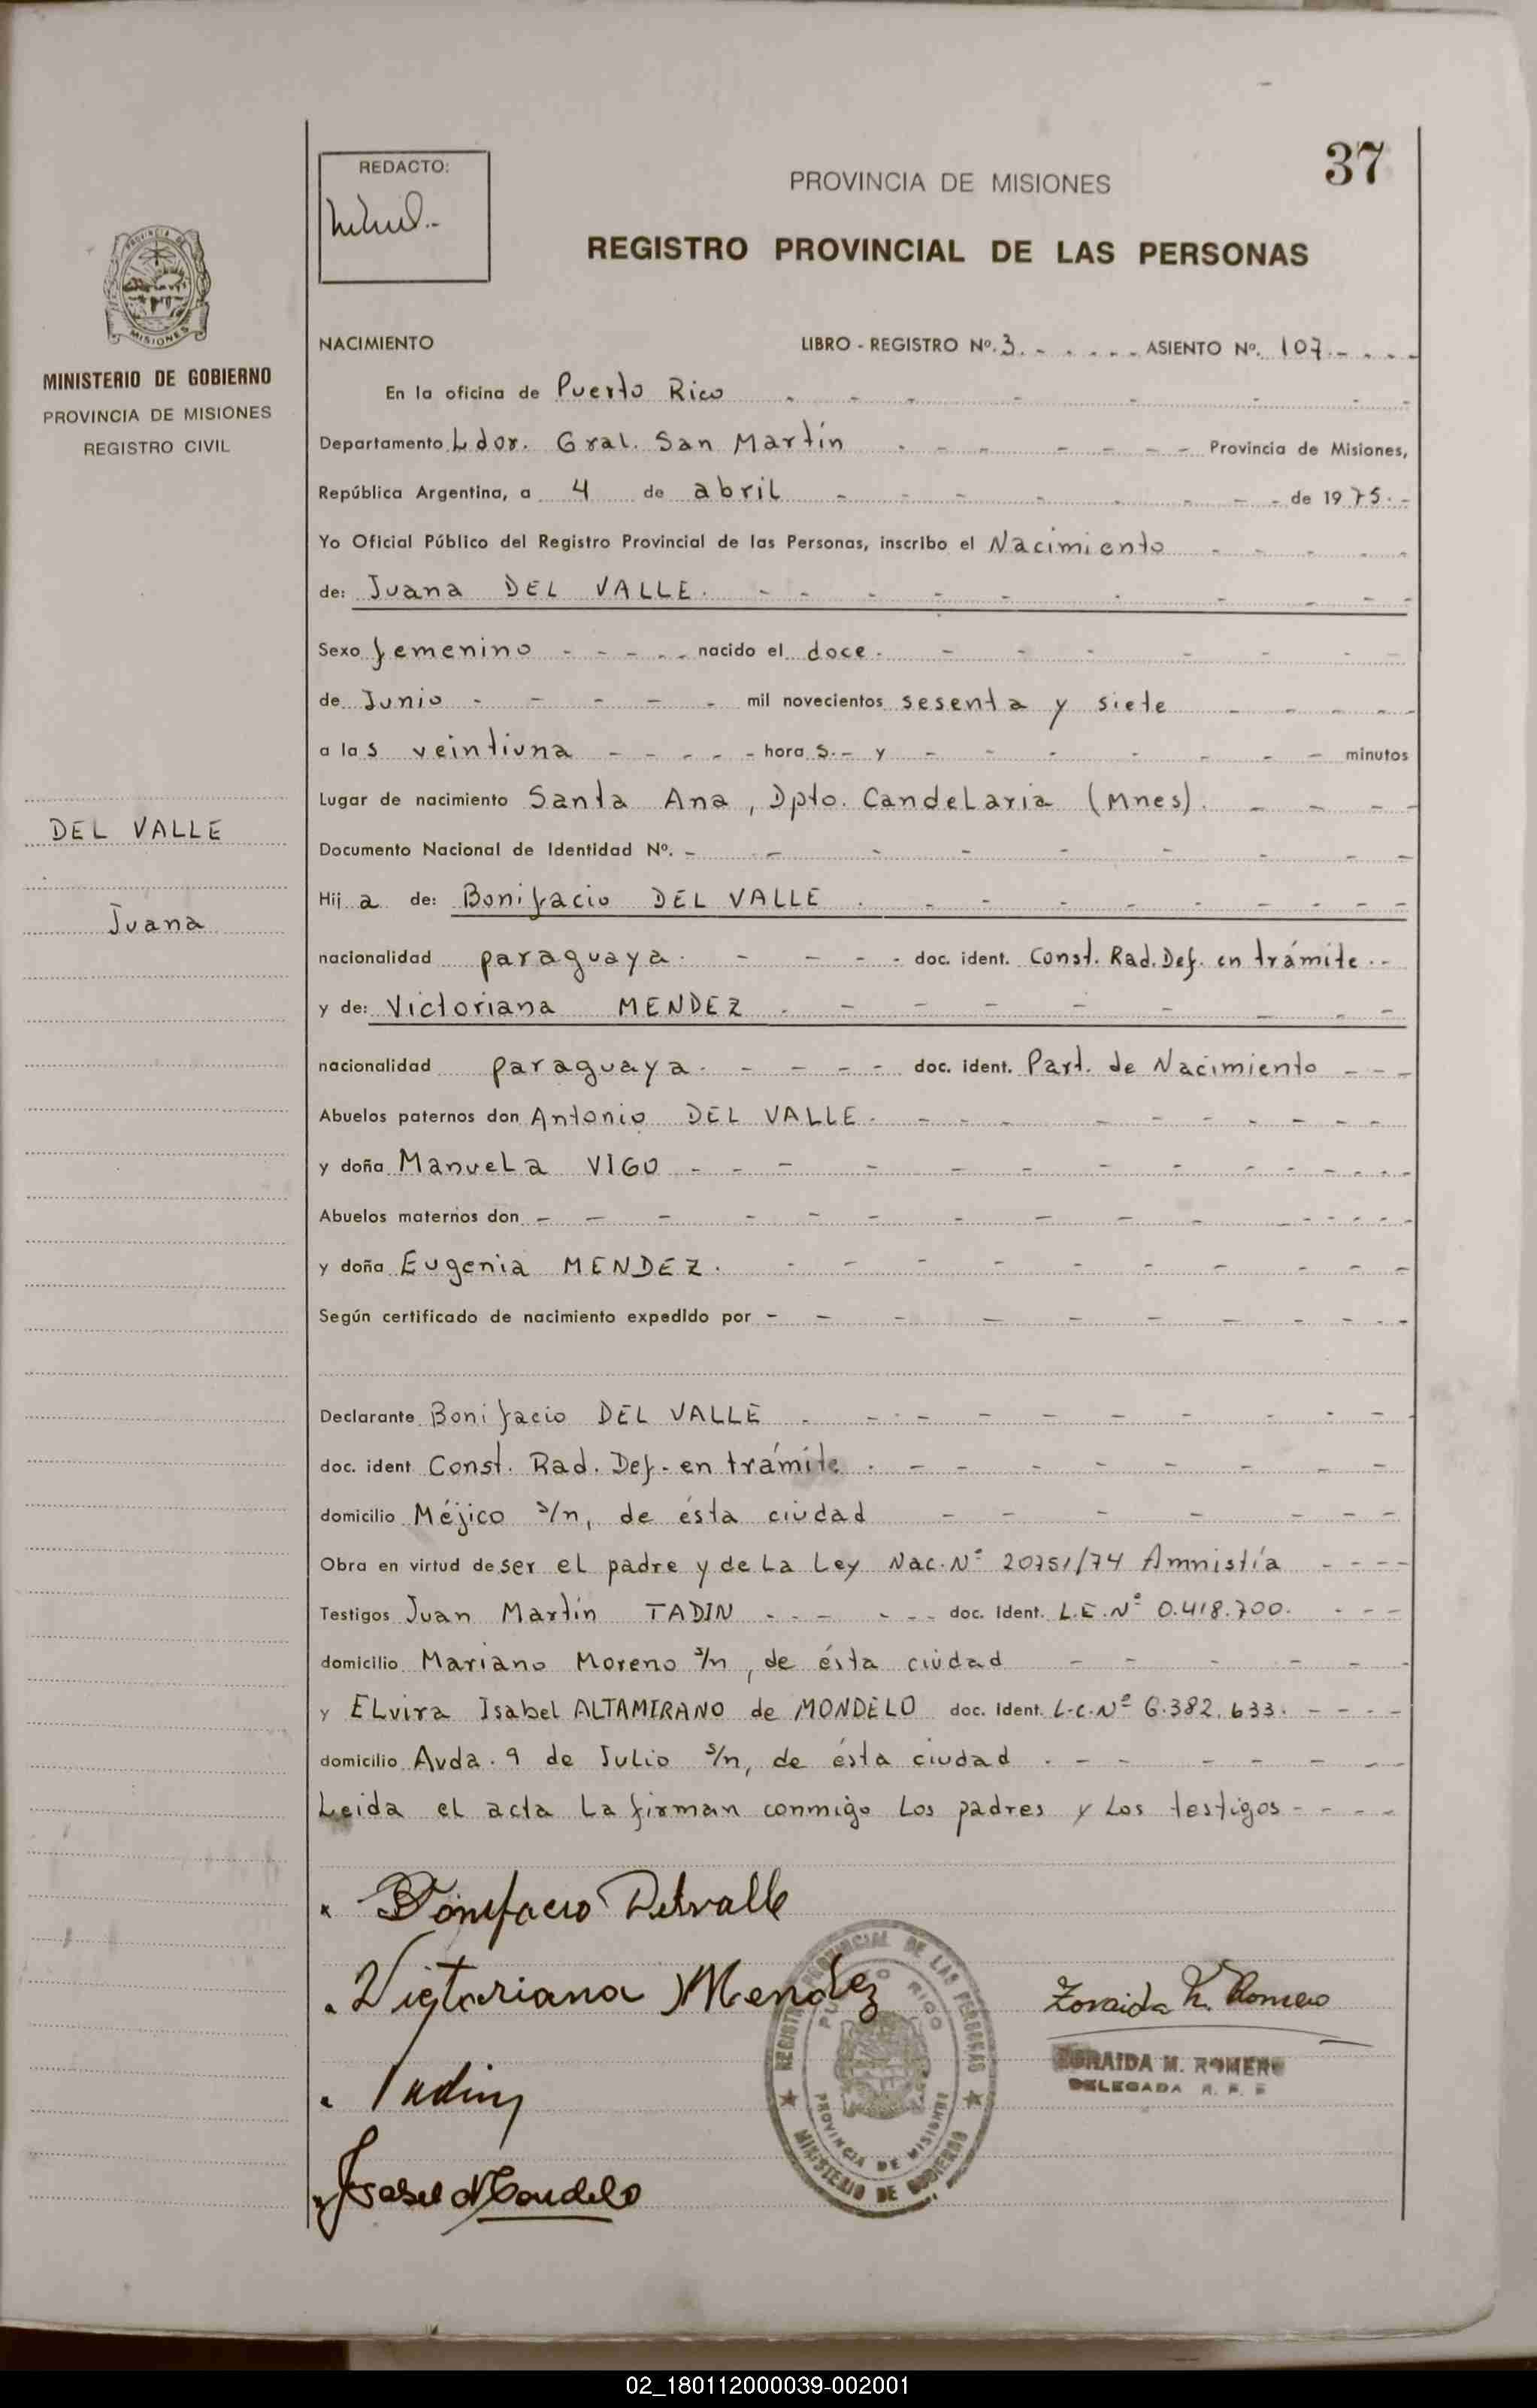 37
REDACTO:
PROVINCIA DE MISIONES
REGISTRO PROVINCIAL DE LAS PERSONAS
PROVINCIA DE
MISIONES
MINISTERIO DE GOBIERNO
PROVINCIA DE MISIONES
REGISTRO CIVIL
DEL VALLE
Juana
NACIMIENTO LIBRO - REGISTRO Nº. 3. - - - - - - ASIENTO Nº. 107. - - - -
En la oficina de Puerto Rico - - - - - - - -
Departamento Ldor. Gral. San Martín - - - - - - - Provincia de Misiones,
República Argentina, a 4 de abril - - - - - - - - de 1975. -
Yo Oficial Público del Registro Provincial de las Personas, inscribo el Nacimiento - - - - -
de: Juana DEL VALLE. - - - - - - - - - -
Sexo femenino - - - - - nacido el doce. - - - - - - -
de Junio - - - - - mil novecientos sesenta y siete - - - - -
a las veintiuna - - - - - horas. - y - - - - - - - minutos
Lugar de nacimiento Santa Ana, Dpto. Candelaria (Mnes). - - - -
Documento Nacional de Identidad Nº. - - - - - - - - -
Hija de: Bonifacio DEL VALLE . - - - - - - - - -
nacionalidad paraguaya. - - - - doc. ident. Const. Rad. Def. en trámite. - -
y de: Victoriana MENDEZ . - - - - - - - -
nacionalidad paraguaya. - - - - doc. ident. Part. de Nacimiento - - -
Abuelos paternos don Antonio DEL VALLE. - - - - - - - - - -
y doña Manuela VIGO - - - - - - - - - - - - -
Abuelos maternos don - - - - - - - - - - - - - -
y doña Eugenia MENDEZ. - - - - - - - - - -
Según certificado de nacimiento expedido por - - - - - - - - - - -
Declarante Bonifacio DEL VALLE . - - - - - - - - - -
doc. ident Const. Rad. Def. en trámite . - - - - - - - -
domicilio Méjico s/n, de ésta ciudad - - - - - - -
Obra en virtud de ser el padre y de la Ley Nac. Nº 20751/74 Amnistía - - - -
Testigos Juan Martín TADIN - - - - - - doc. Ident. L.E. Nº 0.418.700. - - -
domicilio Mariano Moreno s/n, de ésta ciudad - - - - - -
y Elvira Isabel ALTAMIRANO de MONDELO doc. Ident. L.C. Nº 6.382.633. - - - -
domicilio Avda. 9 de Julio s/n, de ésta ciudad . - - - - - - -
Leida el acta la firman conmigo los padres y los testigos - - - -
Bonifacio Delvalle
Victoriana Mendez
Tadin
Isabel Mondelo
REGISTRO PROVINCIAL DE LAS PERSONAS
PUERTO RICO
PROVINCIA DE MISIONES
MINISTERIO DE GOBIERNO
Zoraida M. Romero
ZORAIDA M. ROMERO
DELEGADA R. P. P
02_180112000039-002001